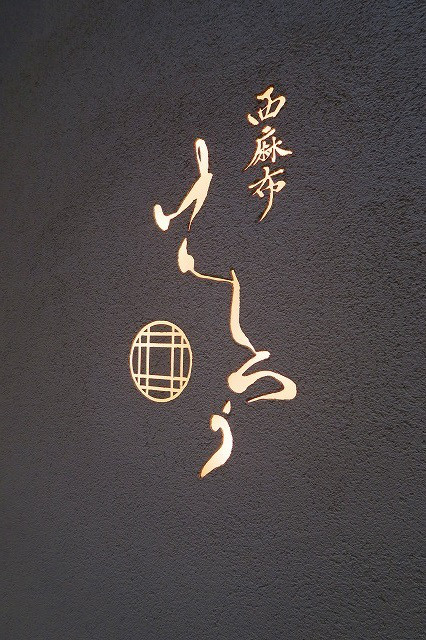 西麻布
けんしろう